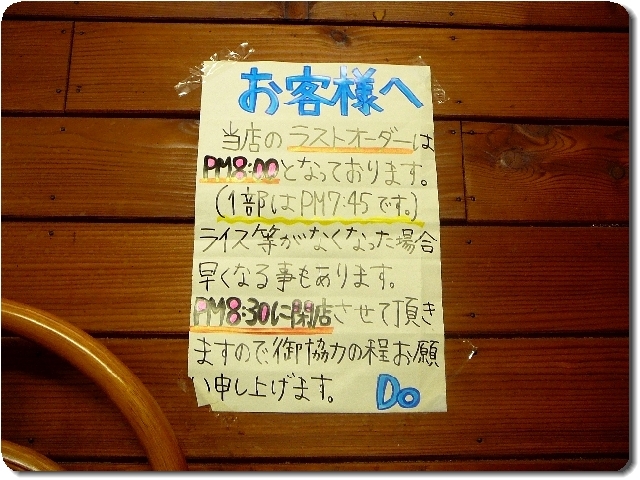 お客様へ
当店のラストオーダーは
PM8:00となっております。
(1部はPM7:45です。)
ライス等がなくなった場合
早くなる事もあります。
PM8:30に閉店させて頂き
ますので御協力の程お願
い申し上げます。 Do